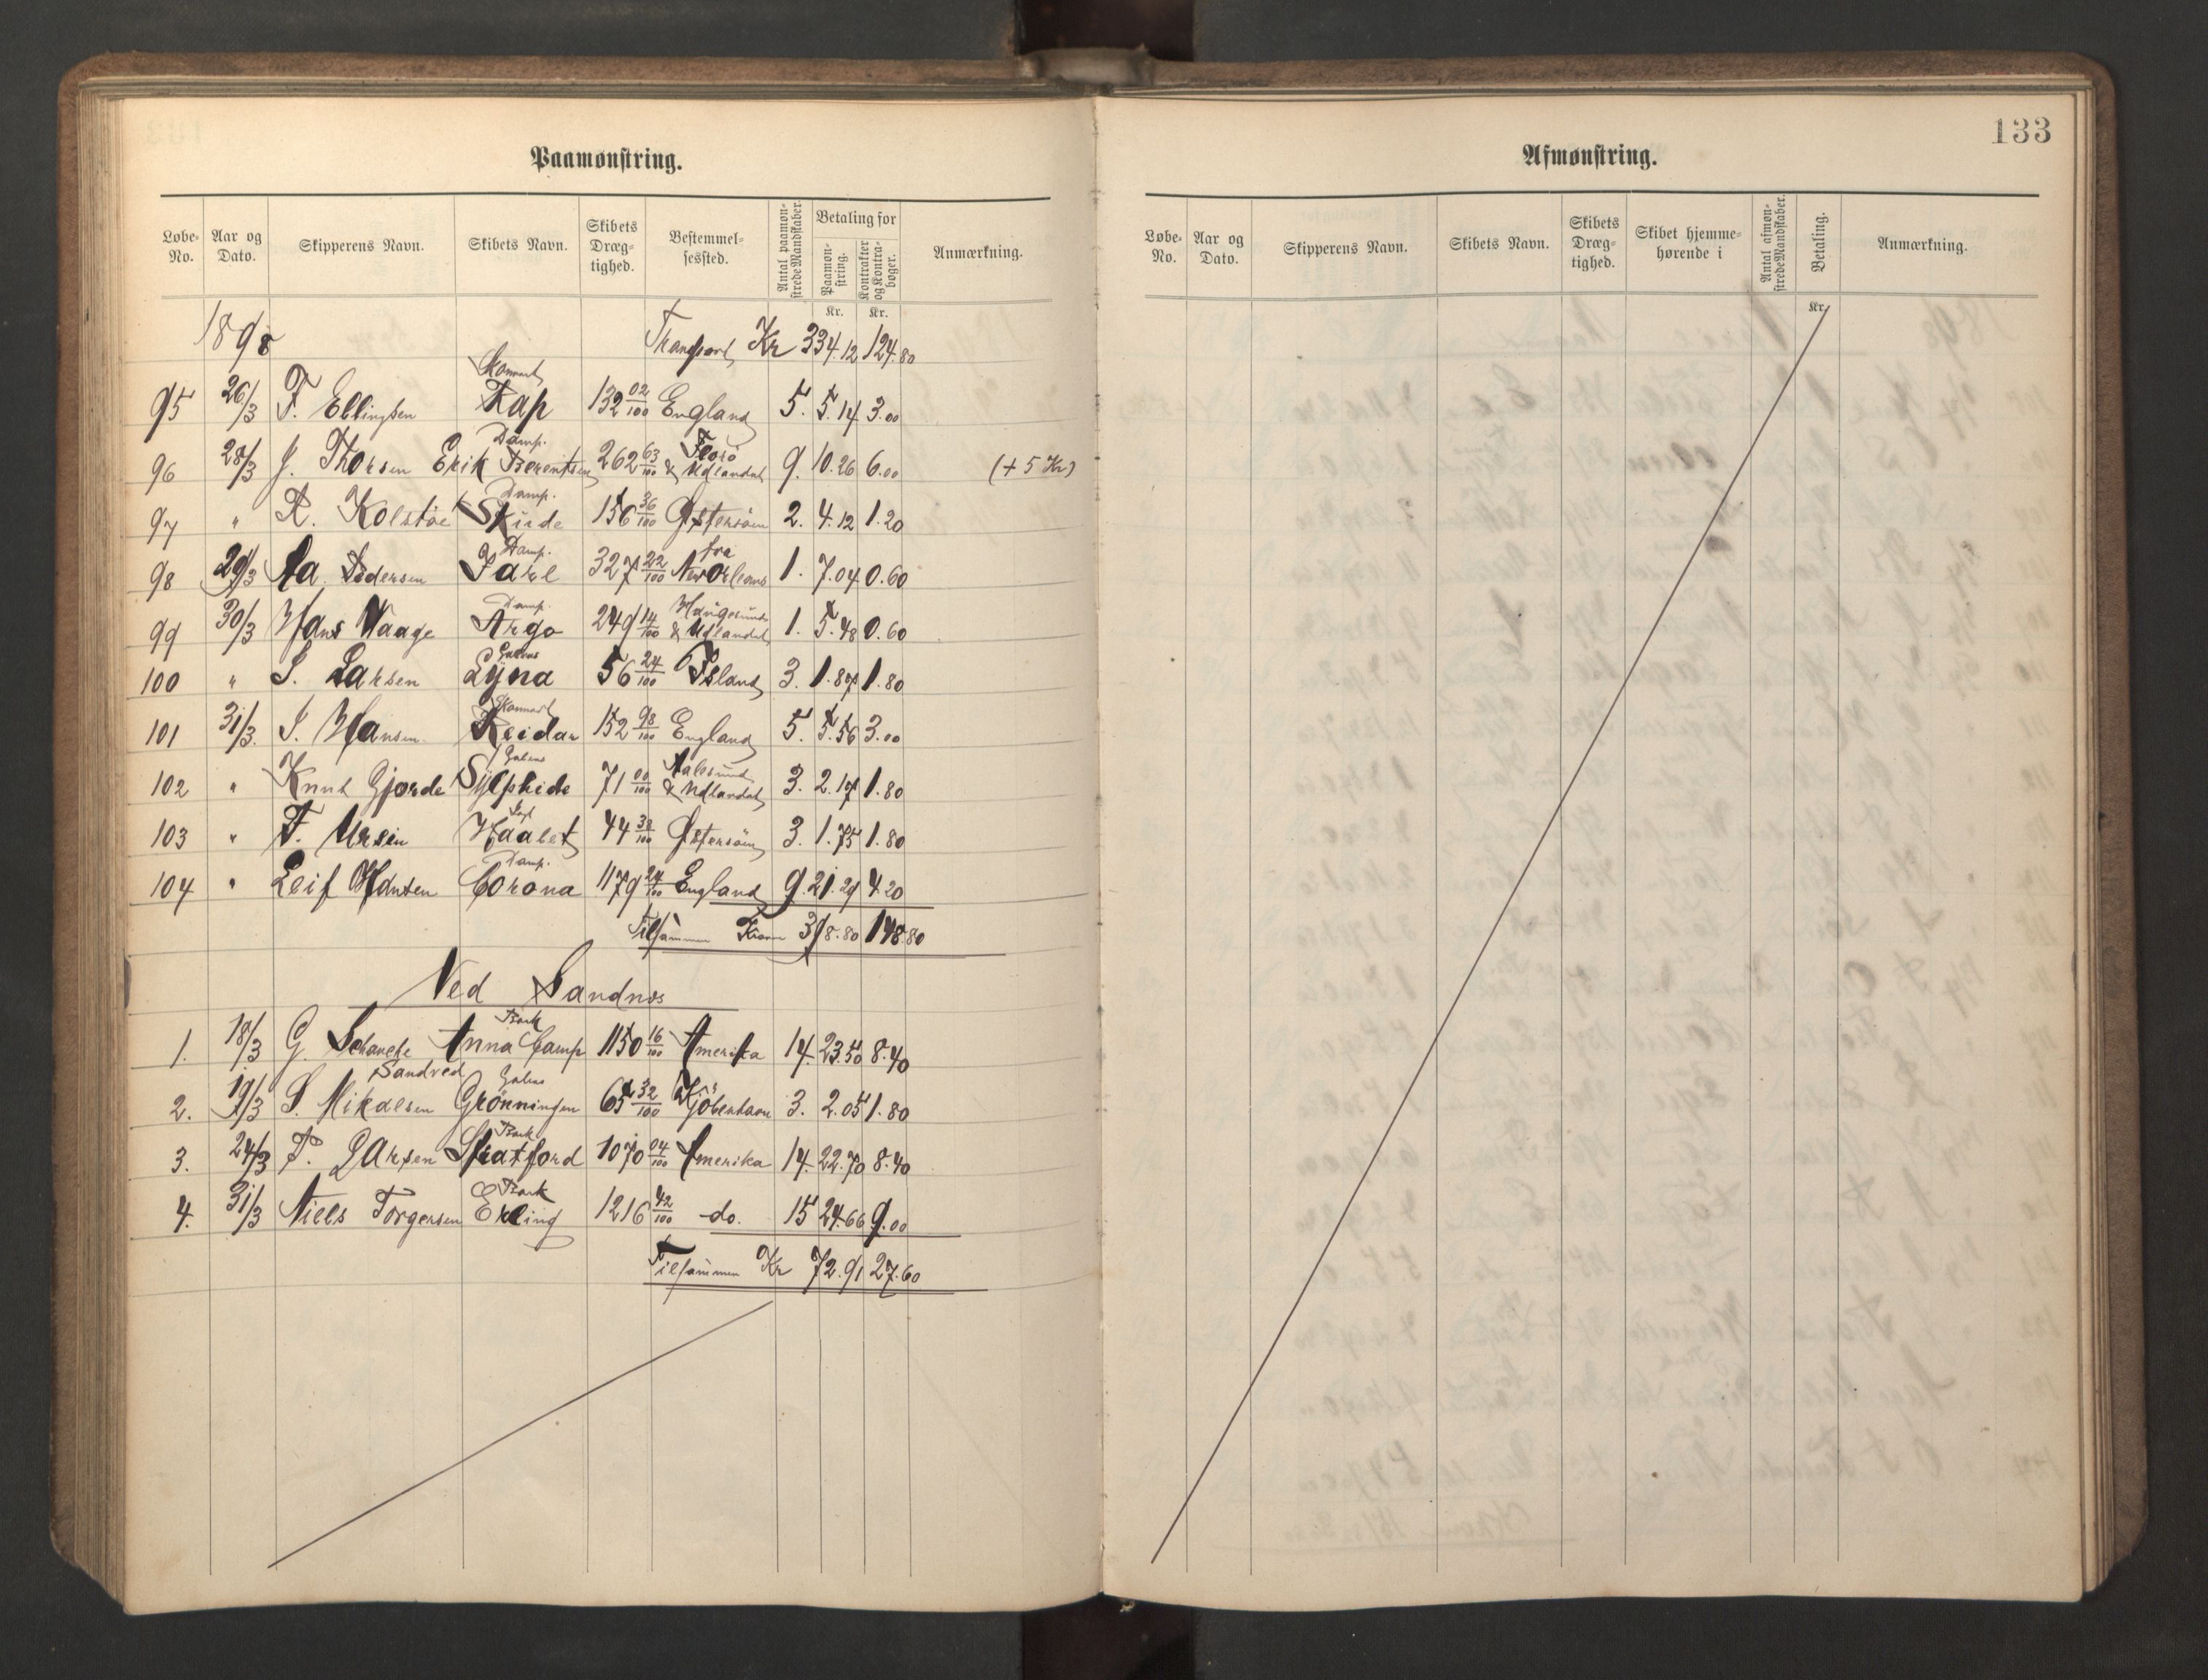 Paamønstring.
Løbe-No. Aar og Dato. Skipperens Navn. Skibets Navn. Skibets Dræg-tighed. Bestemmel-sessted. Antal paamøn-strede Mandskaber. Betaling for Paamøn-string. Kontrakter og Kontra-bøger. Anmærkning.
Kr. Kr.
1898 Transport Kr 334.12 124.80
95 26/3 F. Ellingsen Skonnert Rap 132 02/100 England 5. 5.14 3.00
96 28/3 J. Thorsen Damp. Erik Berentsen 262 63/100 Florö & Udlandet 9. 10.26 6.00 (+ 5 Kr)
97 " R. Kolstöe Damp. Skirde 156 36/100 Østersöen 2. 4.12 1.20
98 29/3 Aa. Pedersen Damp. Jarl 327 22/100 fra New Orleans 1. 7.04 0.60
99 30/3 Hans Waage Damp. Argo 249 14/100 Haugesund & Udlandet 1. 5.48 0.60
100 " S. Larsen Galeas Lyna 56 24/100 Island 3. 1.87 1.80
101 31/3. J. Hansen Skonnert Reidar 152 98/100 England 5. 5.56 3.00
102 " Knut Gjorde Galeas Sylphide 71 00/100 Aalesund & Udlandet 3. 2.17 1.80
103 " F. Ursin Haabet 44 38/100 Østersöen 3. 1.75 1.80
104 " Leif Hansen Damp. Corona 1179 24/100 England 9. 21.29 4.20
Tilsammen Kroner 398.80 148.80
Ved Sandnes
1. 18/3 G. Bark Anna Camp 1150 16/100 Amerika 14. 23.50 8.40
2. 19/3 S. Mikalsen Sandved Galeas Grönningen 65 32/100 Kjöbenhavn 3. 2.05 1.80
3. 24/3 P. Larsen Bark Stratford 1070 04/100 Amerika 14. 22.70 8.40
4. 31/3 Niels Torgersen Bark Erling 1216 42/100 do. 15 24.66 9.00
Tilsammen Kr 72.91 27.60
133
Afmønstring.
Løbe-No. Aar og Dato. Skipperens Navn. Skibets Navn. Skibets Dræg-tighed. Skibet hjemme-hørende i Antal afmøn-strede Mandskaber. Betaling. Anmærkning.
Kr.